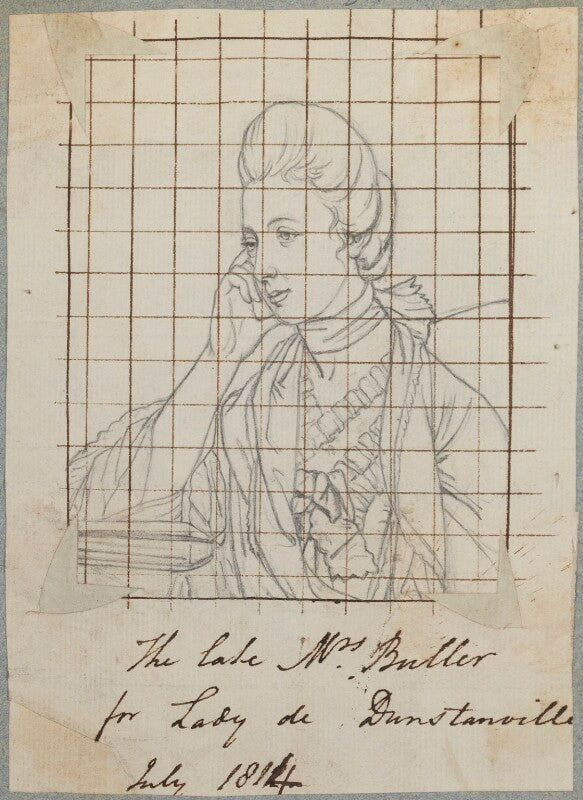 The late Mrs. Buller
for Lady de Dunstanville
July 1814